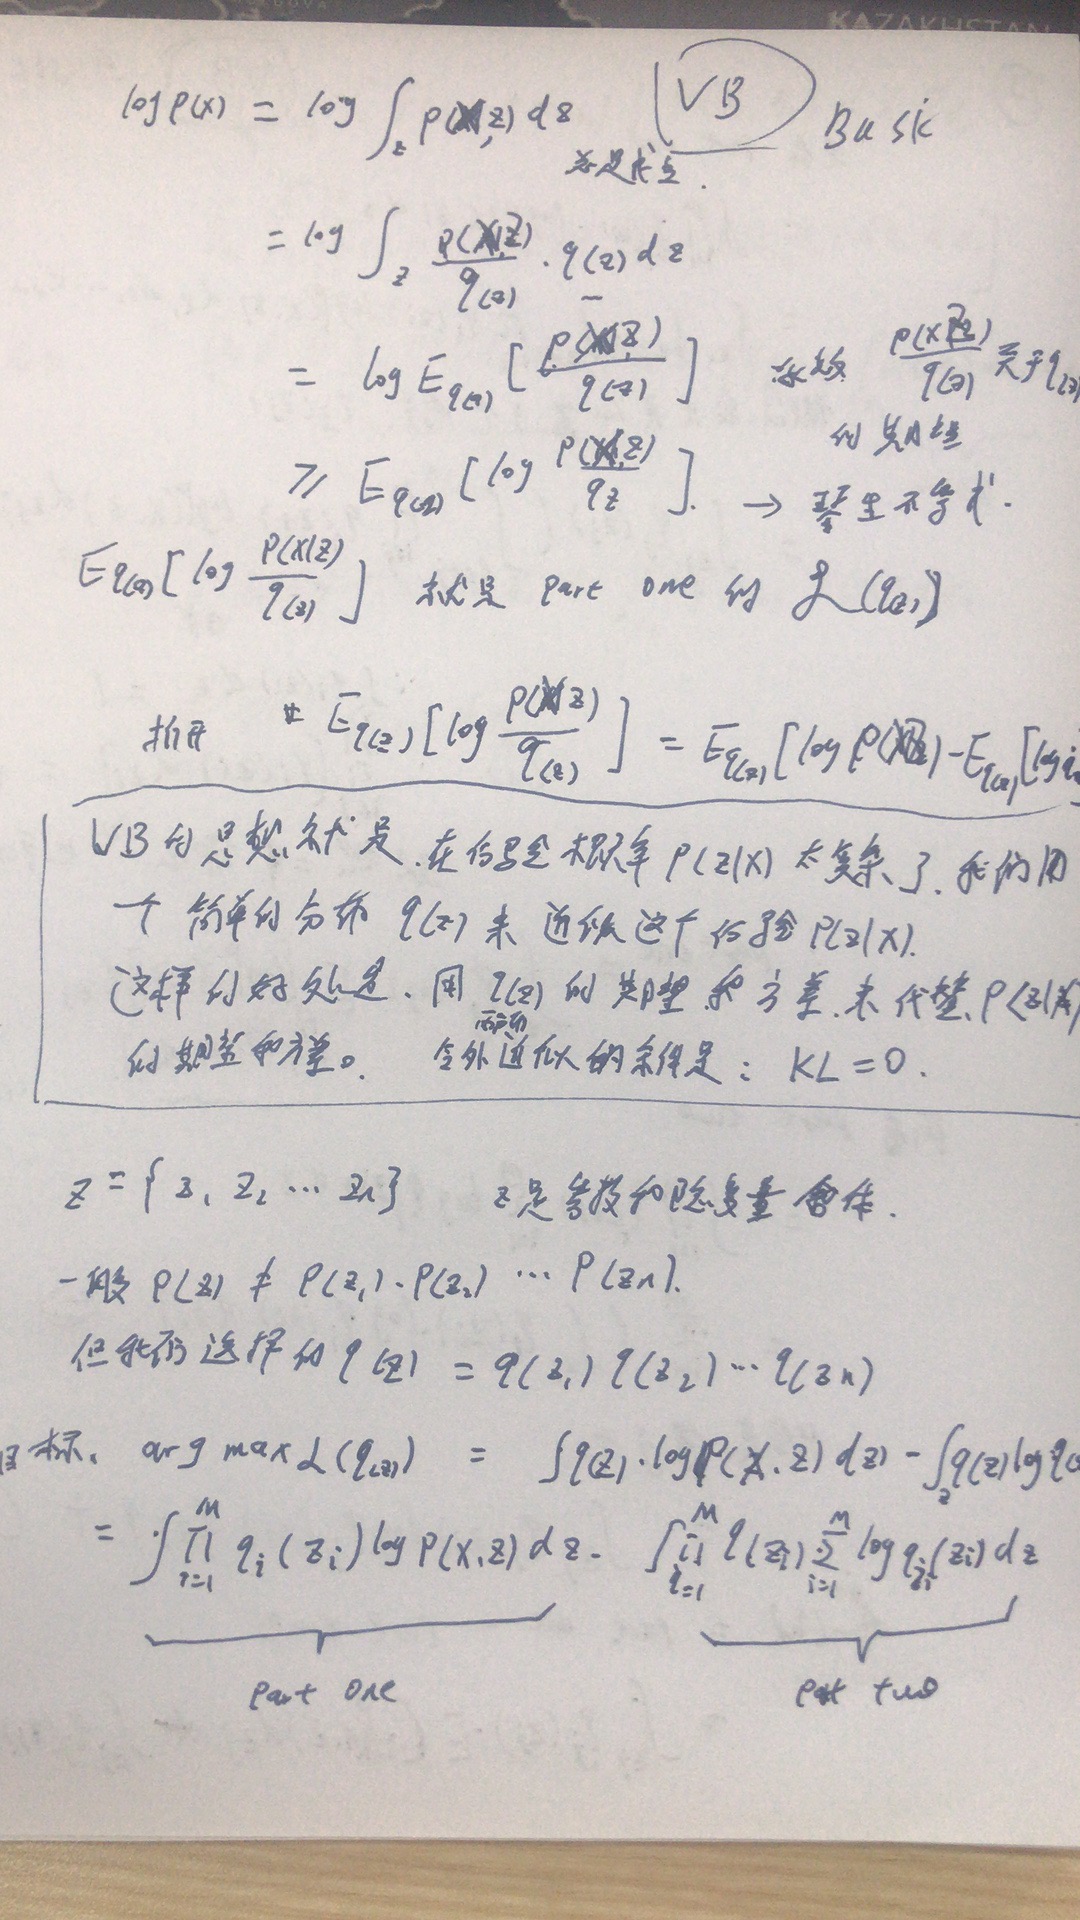 KAZAKHSTAN
log P(x) = log ∫_z p(X,z) dz VB Basic
= log ∫_z P(X,Z)/q(z) · q(z) dz
= log E_q(z) [P(X,Z)/q(z)] 函数 P(X,Z)/q(z) 关于 q(z)
的期望
≥ E_q(z) [log P(X,Z)/qz]. → 琴生不等式.
E_q(z) [log P(X|Z)/q(z)] 就是 part one 的 L(q(z))
拆开 E_q(z) [log P(X,Z)/q(z)] = E_q(z) [log P(X,Z)] - E_q(z) [log
VB的思想就是.在后验概率 P(Z|X) 太复杂了.我们用
一个简单的分布 q(z) 来近似这个后验 P(Z|X).
这样的好处是.用 q(z) 的期望和方差.来代替 P(Z|X)
的期望和方差。 令外近似的条件是: KL=0.
z = {z₁ z₂ … zn} z是参数和隐变量合体.
一般 P(z) ≠ P(z₁)·P(z₂) … P(zn).
但我们选择的 q(z) = q(z₁) q(z₂) … q(zn)
目标. arg max L(q(z)) = ∫q(z)·log P(X,Z) dz - ∫_z q(z) log q(z)
= ∫ ∏_{i=1}^M q_i(z_i) log P(X,Z) dz - ∫ ∏_{i=1}^M q(z_i) Σ_{i=1}^M log q_i(z_i) dz
part one part two